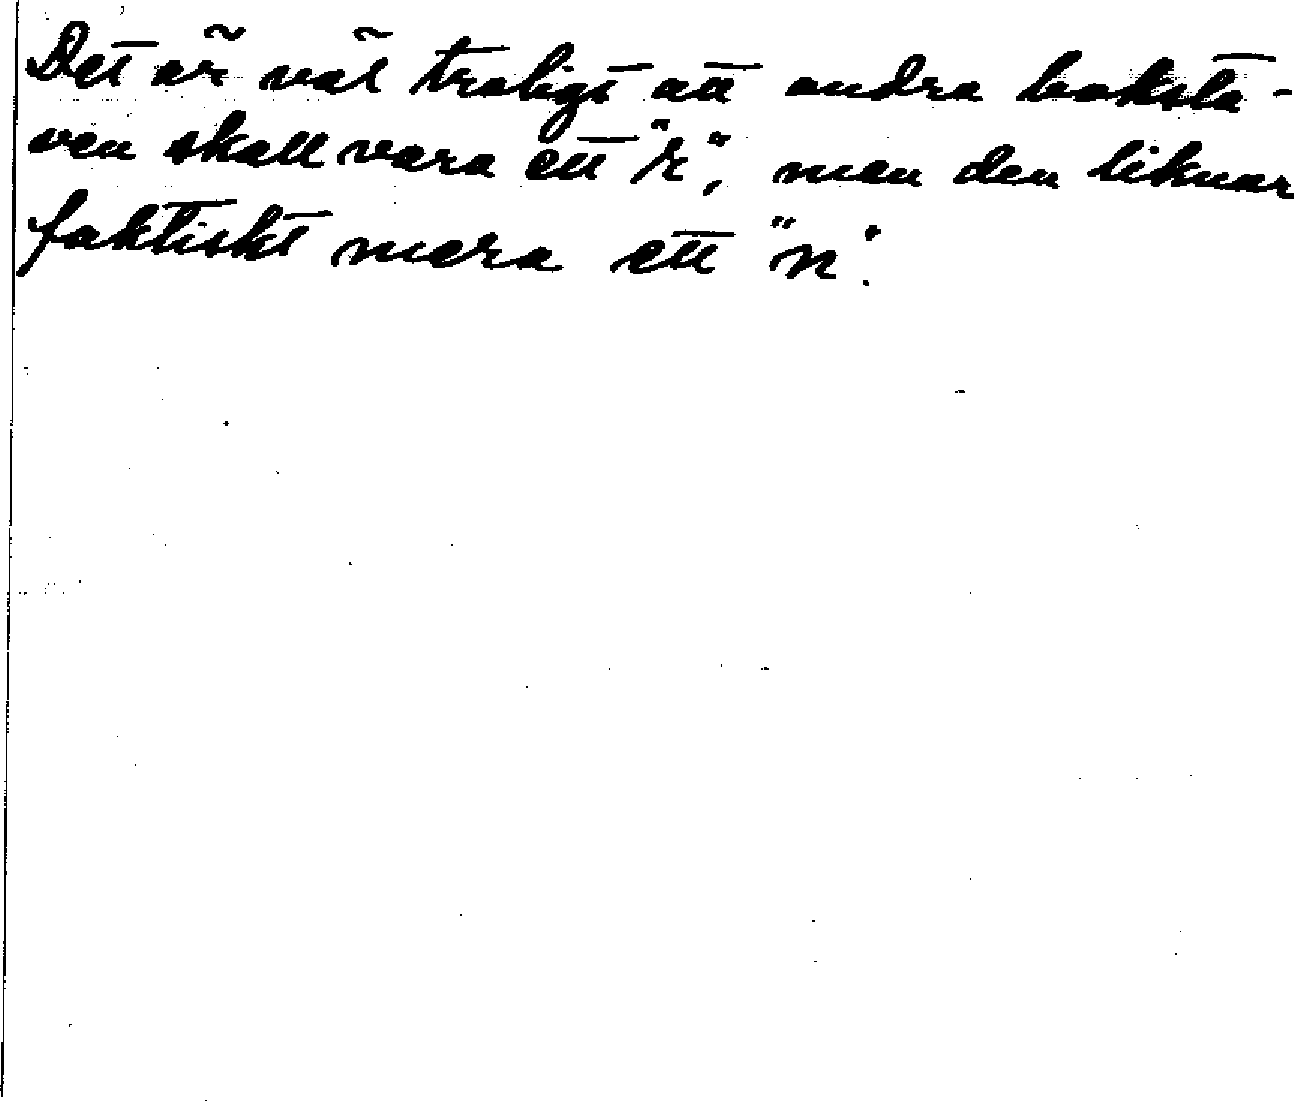 Det är väl troligt att andraboksta-
ven skall vara ett "r", men den liknar
faktiskt mera ett "n".